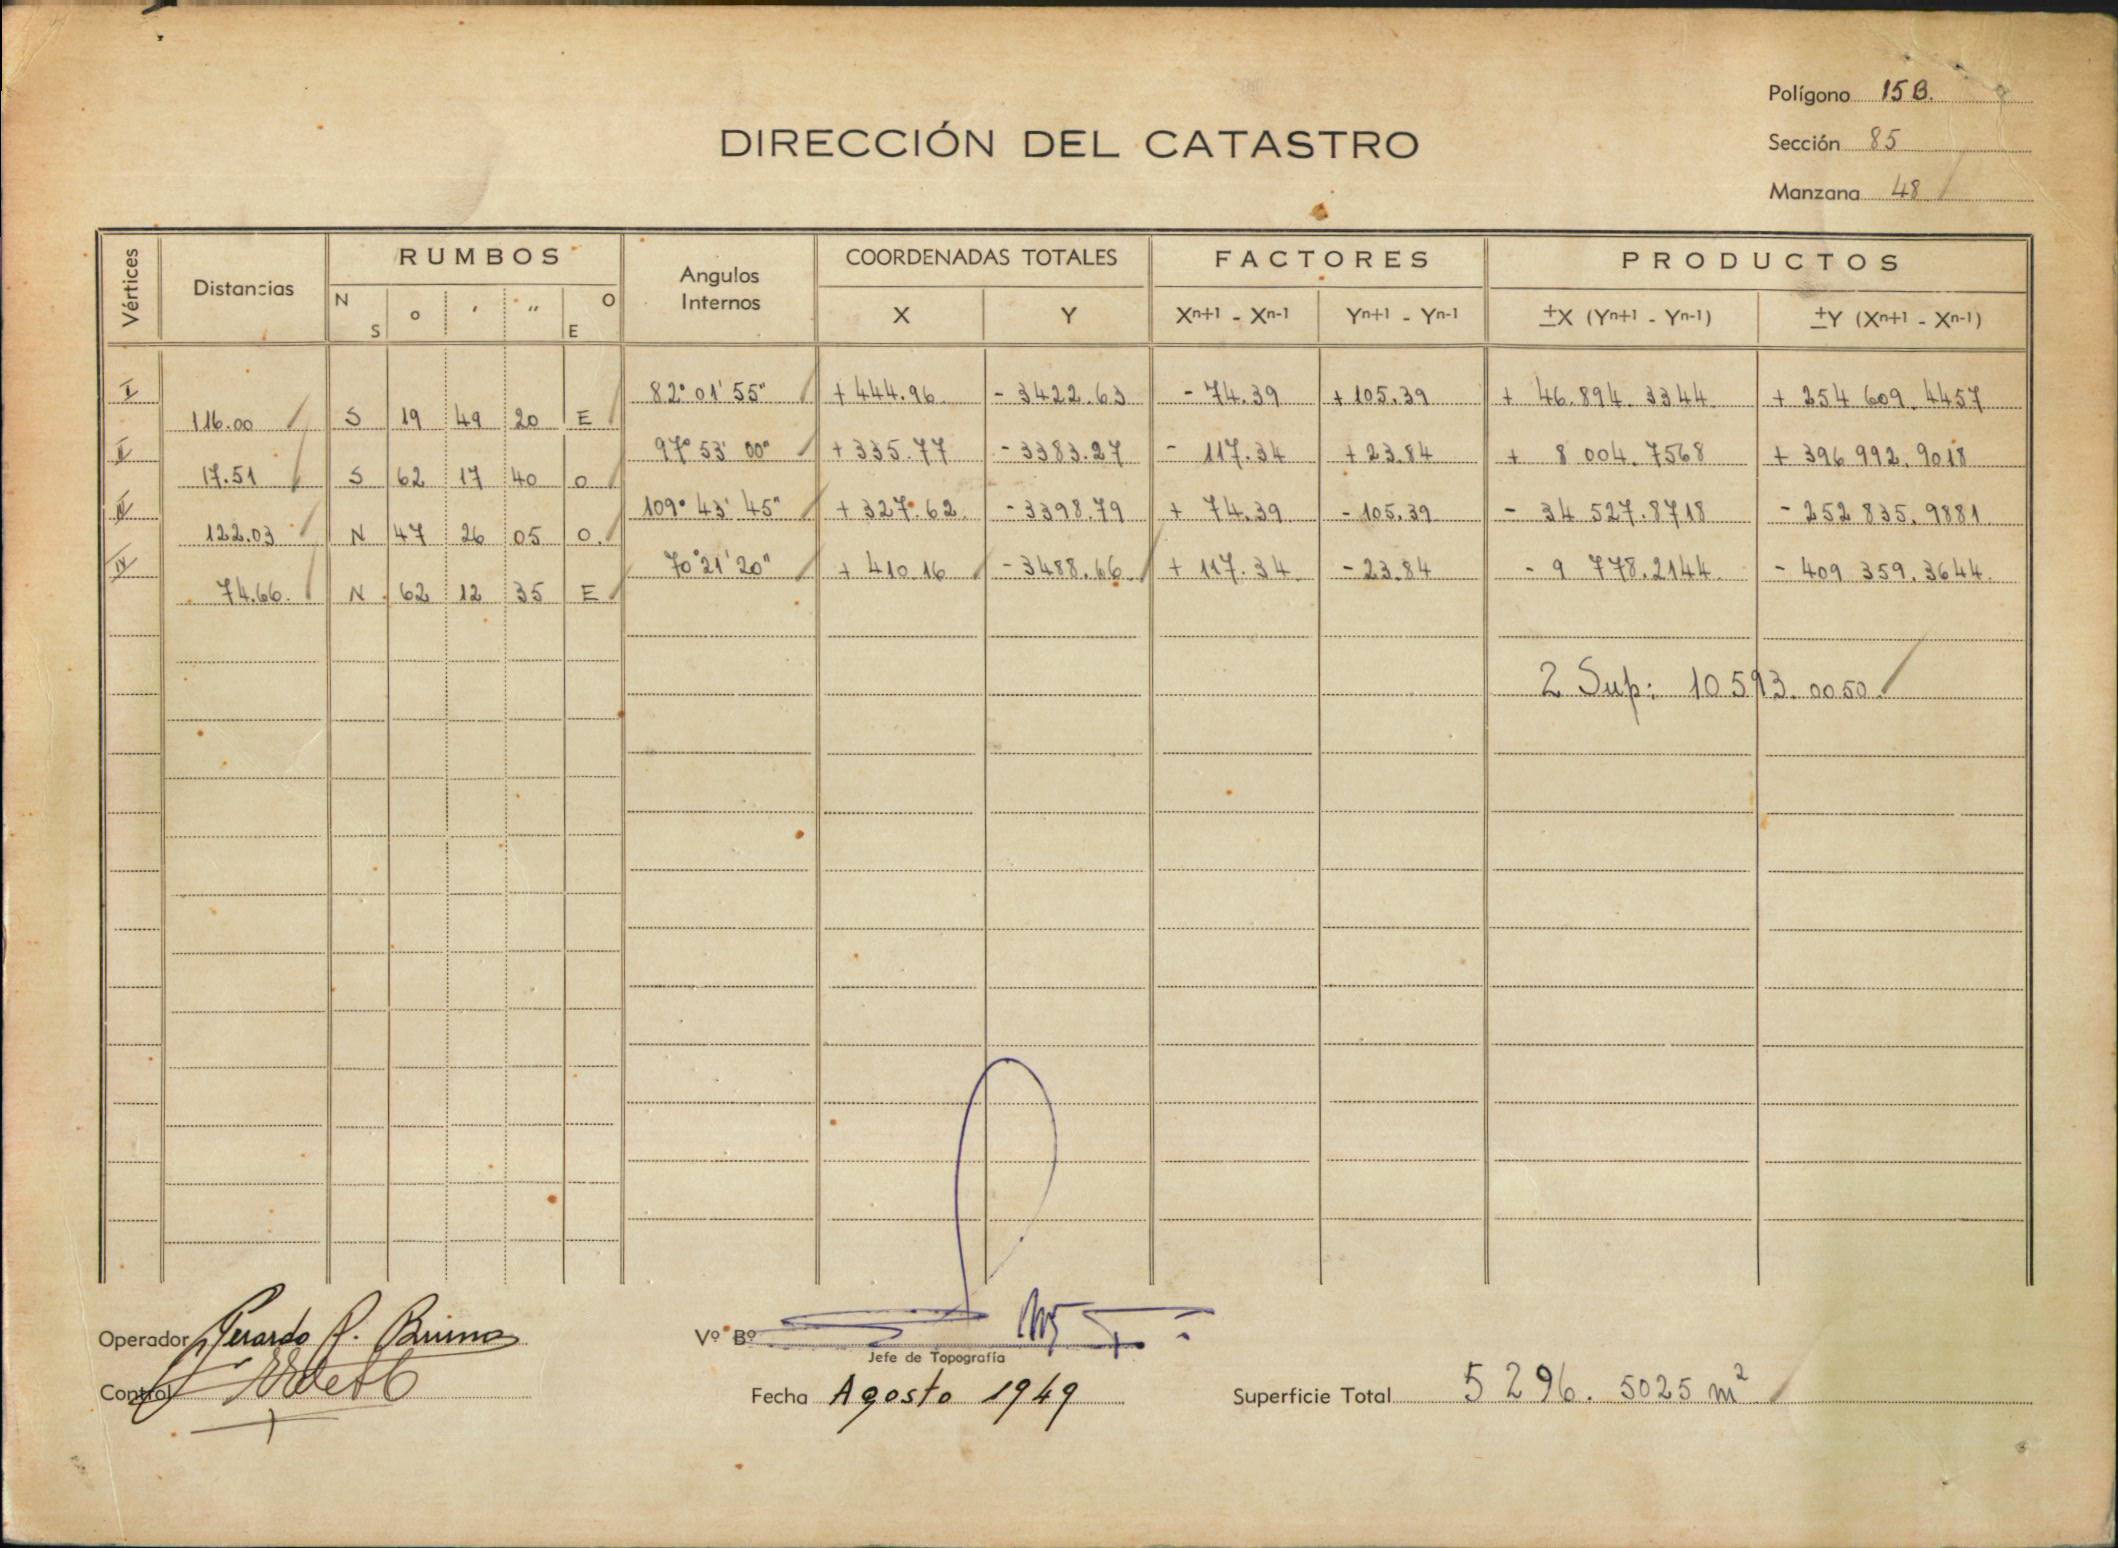 Polígono 15 B.
DIRECCIÓN DEL CATASTRO
Sección 85
Manzana 48
Vértices Distancias RUMBOS Angulos Internos COORDENADAS TOTALES FACTORES PRODUCTOS
N S ° ' " O E X Y Xn+1 - Xn-1 Yn+1 - Yn-1 ±X (Yn+1 - Yn-1) ±Y (Xn+1 - Xn-1)
I 82° 01' 55" + 444.96 - 3422.63 - 74.39 + 105.39 + 46.894.3344 + 254 609.4457
116.00 S 19 49 20 E
II 97° 53' 00" + 335.77 - 3383.27 - 117.34 + 23.84 + 8 004.7568 + 396 992.9018
17.51 S 62 17 40 O
III 109° 43' 45" + 327.62 - 3398.79 + 74.39 - 105.39 - 34 527.8718 - 252 835.9881
122.03 N 47 26 05 O.
IV 70° 21' 20" + 410.16 - 3488.66 + 117.34 - 23.84 - 9 778.2144 - 409 359.3644
74.66. N 62 12 35 E
2 Sup: 10 593.0050.
Operador Gerardo P. Bruno
Vº Bº
Jefe de Topografía
Control
Fecha Agosto 1949
Superficie Total 5 296. 5025 m²